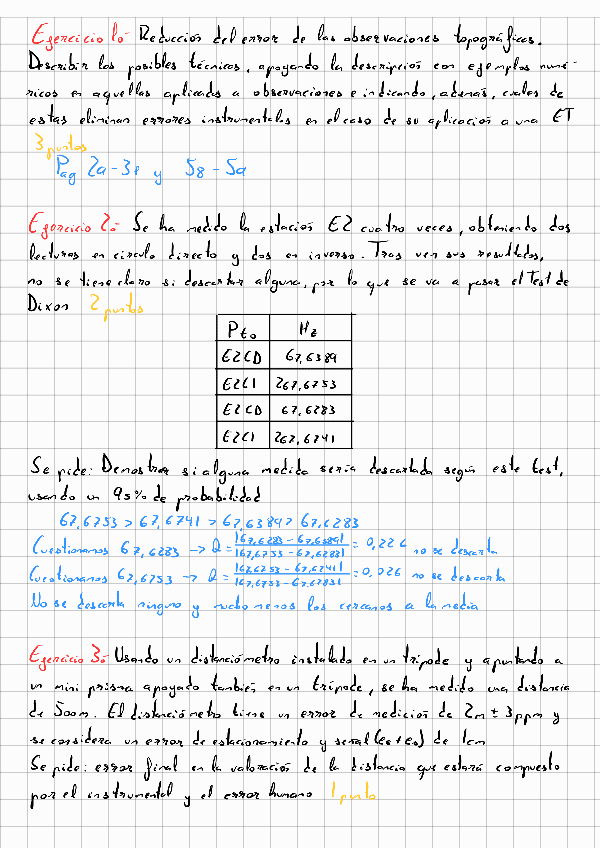 Ejercicio 1o- Reducción del error de las observaciones topográficas.
Describir las posibles técnicas, apoyando la descripción con ejemplos numé-
ricos en aquellas aplicadas a observaciones e indicando, además, cuales de
estas eliminan errores instrumentales en el caso de su aplicación a una ET
3 puntos
Pag 2a-3e y 5g-5a
Ejercicio 2o- Se ha medido la estación E2 cuatro veces, obteniendo dos
lecturas en circulo directo y dos en inverso. Tras ver sus resultados,
no se tiene claro si descartar alguna, por lo que se va a pasar el Test de
Dixon 2 puntos
Pto Hz
E2CD 67,6389
E2CI 267,6753
E2CD 67,6283
E2CI 267,6741
Se pide: Demostrar si alguna medida sería descartada según este test,
usando un 95% de probabilidad
67,6753 > 67,6741 > 67,6389 > 67,6283
Cuestionamos 67,6283 → Q = |67,6283 - 67,6389| / |67,6753 - 67,6283| = 0,226 no se descarta
Cuestionamos 67,6753 → Q = |67,6753 - 67,6741| / |67,6753 - 67,6283| = 0,026 no se descarta
No se descarta ninguno y mucho menos los cercanos a la media
Ejercicio 3o- Usando un distanciómetro instalado en un trípode y apuntando a
un mini prisma apoyado también en un trípode, se ha medido una distancia
de 500m. El distanciómetro tiene un error de medición de 2m ± 3ppm y
se considera un error de estacionamiento y señal (es+es) de 1cm
Se pide: error final en la valoración de la distancia que estará compuesto
por el instrumental y el error humano 1 punto